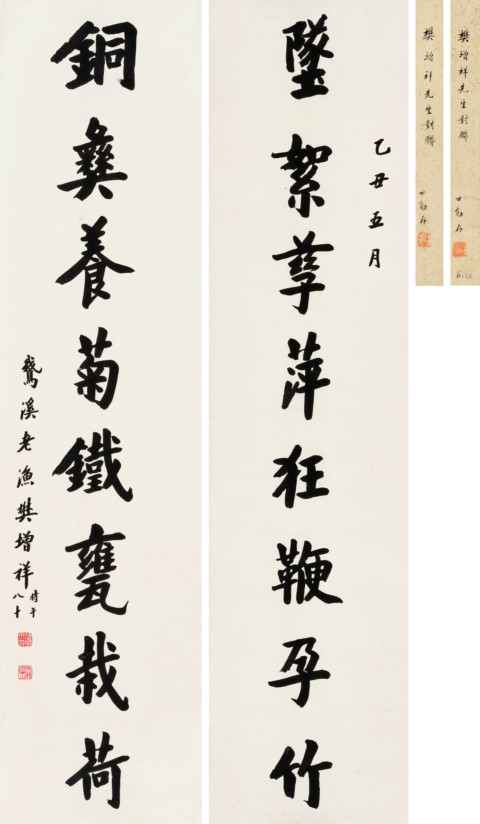 樊增祥先生對聯
樊增祥先生對聯
乙丑五月
墜絮孳萍狂鞭孕竹
銅彝養菊鐵甕栽荷
鵞溪老漁樊增祥時年八十